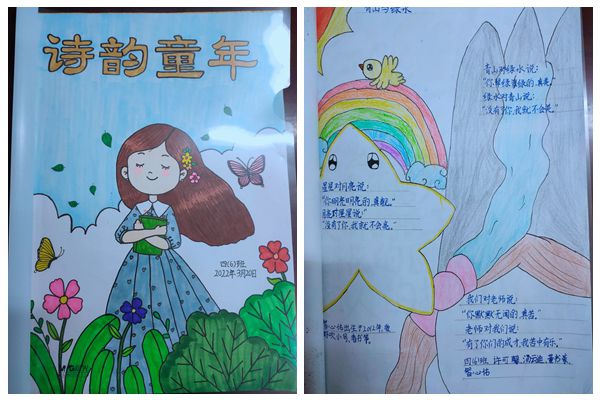 诗韵童年
四(6)班
2022年3月20日
M&G
青山与绿水
青山对绿水说：
绿水对青山说：
"没有了你,我就不会亮。"
星星对月亮说：
"你明亮明亮的,真靓。"
月亮对星星说：
"没有了你,我就不会亮。"
我们对老师说：
"你默默无闻的,真苦。"
老师对我们说：
"有了你们的成才,我苦中有乐。"
四(6)班